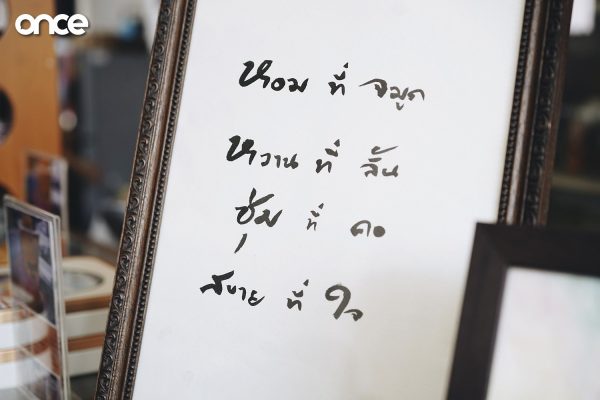 once
หอม ที่ จมูก
หวาน ที่ ลิ้น
ชุ่ม ที่ คอ
สบาย ที่ ใจ